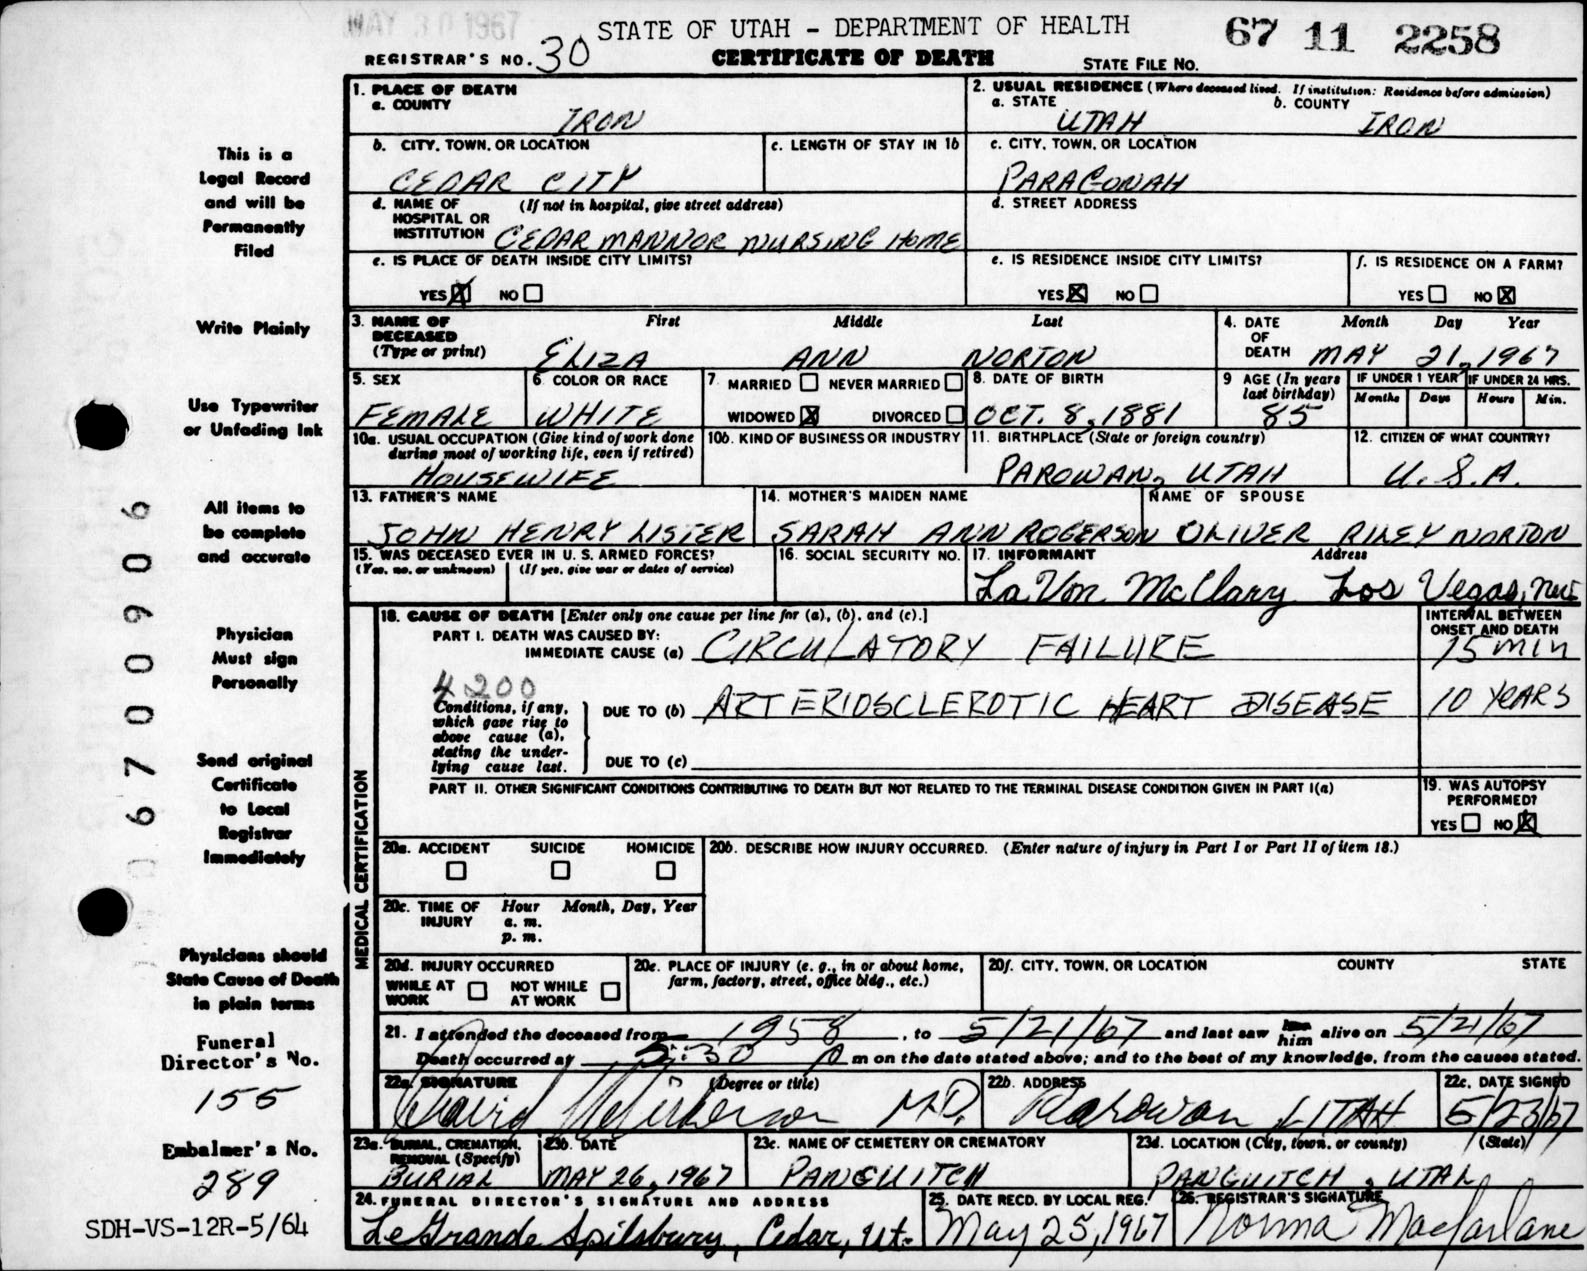 MAY 30 1967
STATE OF UTAH - DEPARTMENT OF HEALTH
67 11 2258
REGISTRAR'S NO. 30
CERTIFICATE OF DEATH
STATE FILE NO.
This is a
Legal Record
and will be
Permanently
Filed
Write Plainly
Use Typewriter
or Unfading Ink
All items to
be complete
and accurate
Physician
Must sign
Personally
Send original
Certificate
to Local
Registrar
Immediately
Physicians should
State Cause of Death
in plain terms
Funeral
Director's No.
155
Embalmer's No.
289
SDH-VS-12R-5/64
6700906
1. PLACE OF DEATH
a. COUNTY
IRON
2. USUAL RESIDENCE (Where deceased lived. If institution: Residence before admission)
a. STATE
UTAH
b. COUNTY
IRON
b. CITY, TOWN, OR LOCATION
CEDAR CITY
c. LENGTH OF STAY IN 1b
c. CITY, TOWN, OR LOCATION
PARAGONAH
d. NAME OF (If not in hospital, give street address)
HOSPITAL OR
INSTITUTION CEDAR MANNOR NURSING HOME
d. STREET ADDRESS
e. IS PLACE OF DEATH INSIDE CITY LIMITS?
YES X NO
e. IS RESIDENCE INSIDE CITY LIMITS?
YES X NO
f. IS RESIDENCE ON A FARM?
YES NO X
3. NAME OF DECEASED (Type or print)
First Middle Last
ELIZA ANN NORTON
4. DATE OF DEATH
Month Day Year
MAY 21, 1967
5. SEX
FEMALE
6. COLOR OR RACE
WHITE
7. MARRIED NEVER MARRIED
WIDOWED X DIVORCED
8. DATE OF BIRTH
OCT. 8, 1881
9 AGE (In years last birthday)
85
IF UNDER 1 YEAR
Months Days
IF UNDER 24 HRS.
Hours Min.
10a. USUAL OCCUPATION (Give kind of work done
during most of working life, even if retired)
HOUSEWIFE
10b. KIND OF BUSINESS OR INDUSTRY
11. BIRTHPLACE (State or foreign country)
PAROWAN, UTAH
12. CITIZEN OF WHAT COUNTRY?
U.S.A.
13. FATHER'S NAME
JOHN HENRY LISTER
14. MOTHER'S MAIDEN NAME
SARAH ANN ROGERSON
NAME OF SPOUSE
OLIVER RILEY NORTON
15. WAS DECEASED EVER IN U. S. ARMED FORCES?
(Yes, no, or unknown) (If yes, give war or dates of service)
16. SOCIAL SECURITY NO.
17. INFORMANT Address
LaVon McClary Los Vegas, Nev
MEDICAL CERTIFICATION
18. CAUSE OF DEATH [Enter only one cause per line for (a), (b), and (c).]
INTERVAL BETWEEN
ONSET AND DEATH
PART I. DEATH WAS CAUSED BY:
IMMEDIATE CAUSE (a) CIRCULATORY FAILURE
15 MIN
4200
Conditions, if any,
which gave rise to
above cause (a),
stating the under-
lying cause last.
DUE TO (b) ARTERIOSCLEROTIC HEART DISEASE
10 YEARS
DUE TO (c)
PART II. OTHER SIGNIFICANT CONDITIONS CONTRIBUTING TO DEATH BUT NOT RELATED TO THE TERMINAL DISEASE CONDITION GIVEN IN PART I(a)
19. WAS AUTOPSY
PERFORMED?
YES NO X
20a. ACCIDENT SUICIDE HOMICIDE
20b. DESCRIBE HOW INJURY OCCURRED. (Enter nature of injury in Part I or Part II of item 18.)
20c. TIME OF INJURY
Hour Month, Day, Year
a. m.
p. m.
20d. INJURY OCCURRED
WHILE AT WORK NOT WHILE AT WORK
20e. PLACE OF INJURY (e. g., in or about home,
farm, factory, street, office bldg., etc.)
20f. CITY, TOWN, OR LOCATION COUNTY STATE
21. I attended the deceased from 1958, to 5/21/67 and last saw him alive on 5/21/67
Death occurred at 5:30 A m on the date stated above; and to the best of my knowledge, from the causes stated.
22a. SIGNATURE (Degree or title)
M.D.
22b. ADDRESS
Parowan UTAH
22c. DATE SIGNED
5/23/67
23a. BURIAL, CREMATION,
REMOVAL (Specify)
BURIAL
23b. DATE
MAY 26, 1967
23c. NAME OF CEMETERY OR CREMATORY
PANGUITCH
23d. LOCATION (City, town, or county) (State)
PANGUITCH, UTAH
24. FUNERAL DIRECTOR'S SIGNATURE AND ADDRESS
LeGrande Spilsbury, Cedar, Ut.
25. DATE RECD. BY LOCAL REG.
May 25, 1967
26. REGISTRAR'S SIGNATURE
Norma Macfarlane